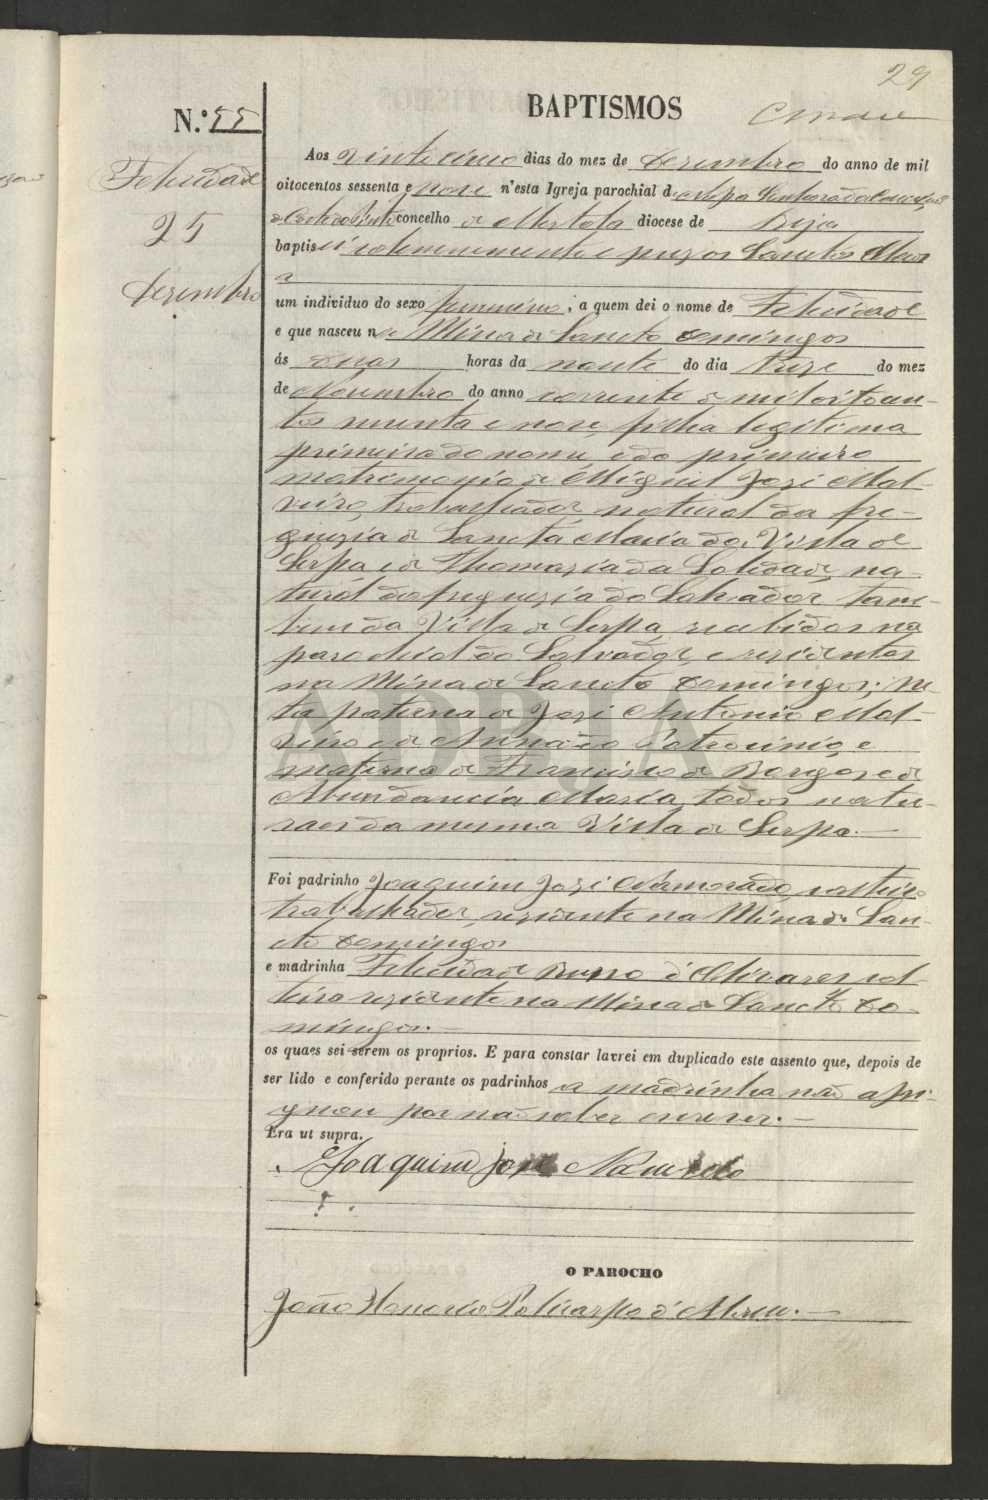 29
BAPTISMOS
N.º 55
Felicidade
25
Dezembro
Aos vinte cinco dias do mez de Dezembro do anno de mil
oitocentos sessenta e nove n'esta Igreja parochial de Nossa Senhora da Conceição
concelho de Mertola diocese de Beja
baptisei solemnemente e puz os Sanctos Oleos
a
um individuo do sexo feminino, a quem dei o nome de Felicidade
e que nasceu na Mina de Sancto Domingos
ás duas horas da noute do dia treze do mez
de Novembro do anno corrente de mil oitocen-
tos secenta e nove, filha legitima
primeira do nome e do primeiro
matrimonio de Miguel José Mal-
veiro, trabalhador natural da fre-
guezia de Sancta Maria da Villa de
Serpa e de Thomazia da Soledade, na-
tural da freguezia do Salvador tam-
bem da Villa de Serpa, recebidos na
parochial do Salvador, e rezidentes
na Mina de Sancto Domingos; ne-
ta paterna de José Antonio Mal-
veiro e de Anna do Patrocinio, e
materna de Francisco de Borges e de
Abundancia Maria, todos natu-
raes da mesma Villa de Serpa.
Foi padrinho Joaquim José Namorado, solteiro
trabalhador, rezidente na Mina de San-
cto Domingos
e madrinha Felicidade d'Olivares sol-
teira rezidente na Mina de Sancto Do-
mingos.
os quaes sei serem os proprios. E para constar lavrei em duplicado este assento que, depois de
ser lido e conferido perante os padrinhos a madrinha não assi-
gnou por não saber escrever.
Era ut supra.
Joaquim José Namorado
O PAROCHO
João Policarpo d'Abreu.
ADBJA